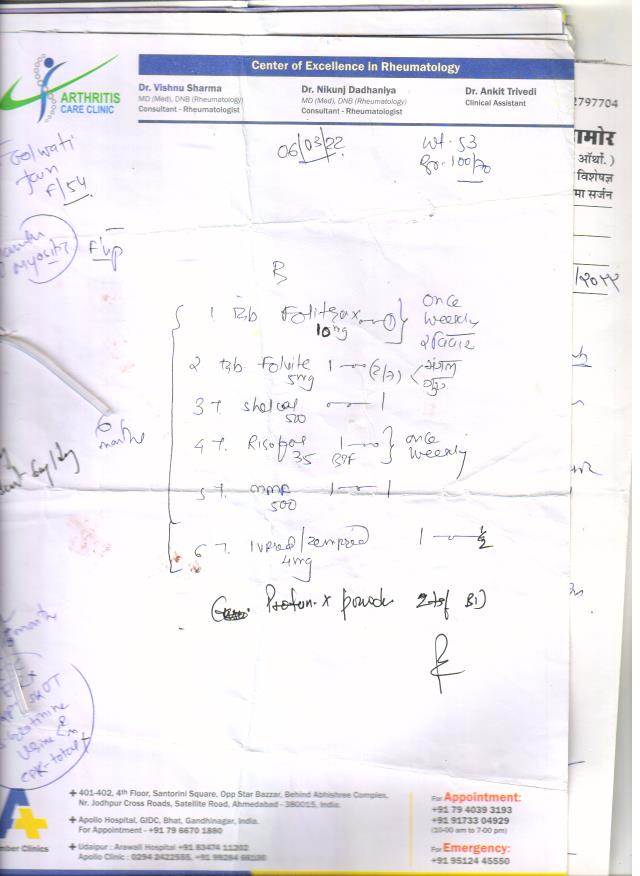 Center of Excellence in Rheumatology
ARTHRITIS
CARE CLINIC
Dr. Vishnu Sharma
MD (Med), DNB (Rheumatology)
Consultant - Rheumatologist
Dr. Nikunj Dadhaniya
MD (Med), DNB (Rheumatology)
Consultant - Rheumatologist
Dr. Ankit Trivedi
Clinical Assistant
2797704
ऑर्थो.)
विशेषज्ञ
मा सर्जन
06/03/22
Wt. 53
100/70
F/54
Myositis
F/up
1 Tab Folitrax 1 once
10mg weekly
रविवार
2 Tab. Folvite 1 (2/7) मंगल
5mg गुरु
3 T. Shelcal 1
500
6
months
4 T. 1 once
35 BBF weekly
5 T. MMF 1 1
500
6 T. 1 ½
4mg
powder
SGOT
S. creatinine
CPK-total
401-402, 4th Floor, Santorini Square, Opp Star Bazzar, Behind Abhishree Complex,
Nr. Jodhpur Cross Roads, Satellite Road, Ahmedabad - 380015, India.
Apollo Hospital, GIDC, Bhat, Gandhinagar, India.
For Appointment - +91 79 6670 1880
Udaipur : Arawali Hospital +91 83474 11202
Apollo Clinic : 0294 2422555,
For Appointment:
+91 79 4039 3193
+91 91733 04929
(10-00 am to 7-00 pm)
For Emergency:
+91 95124 45550
mber Clinics